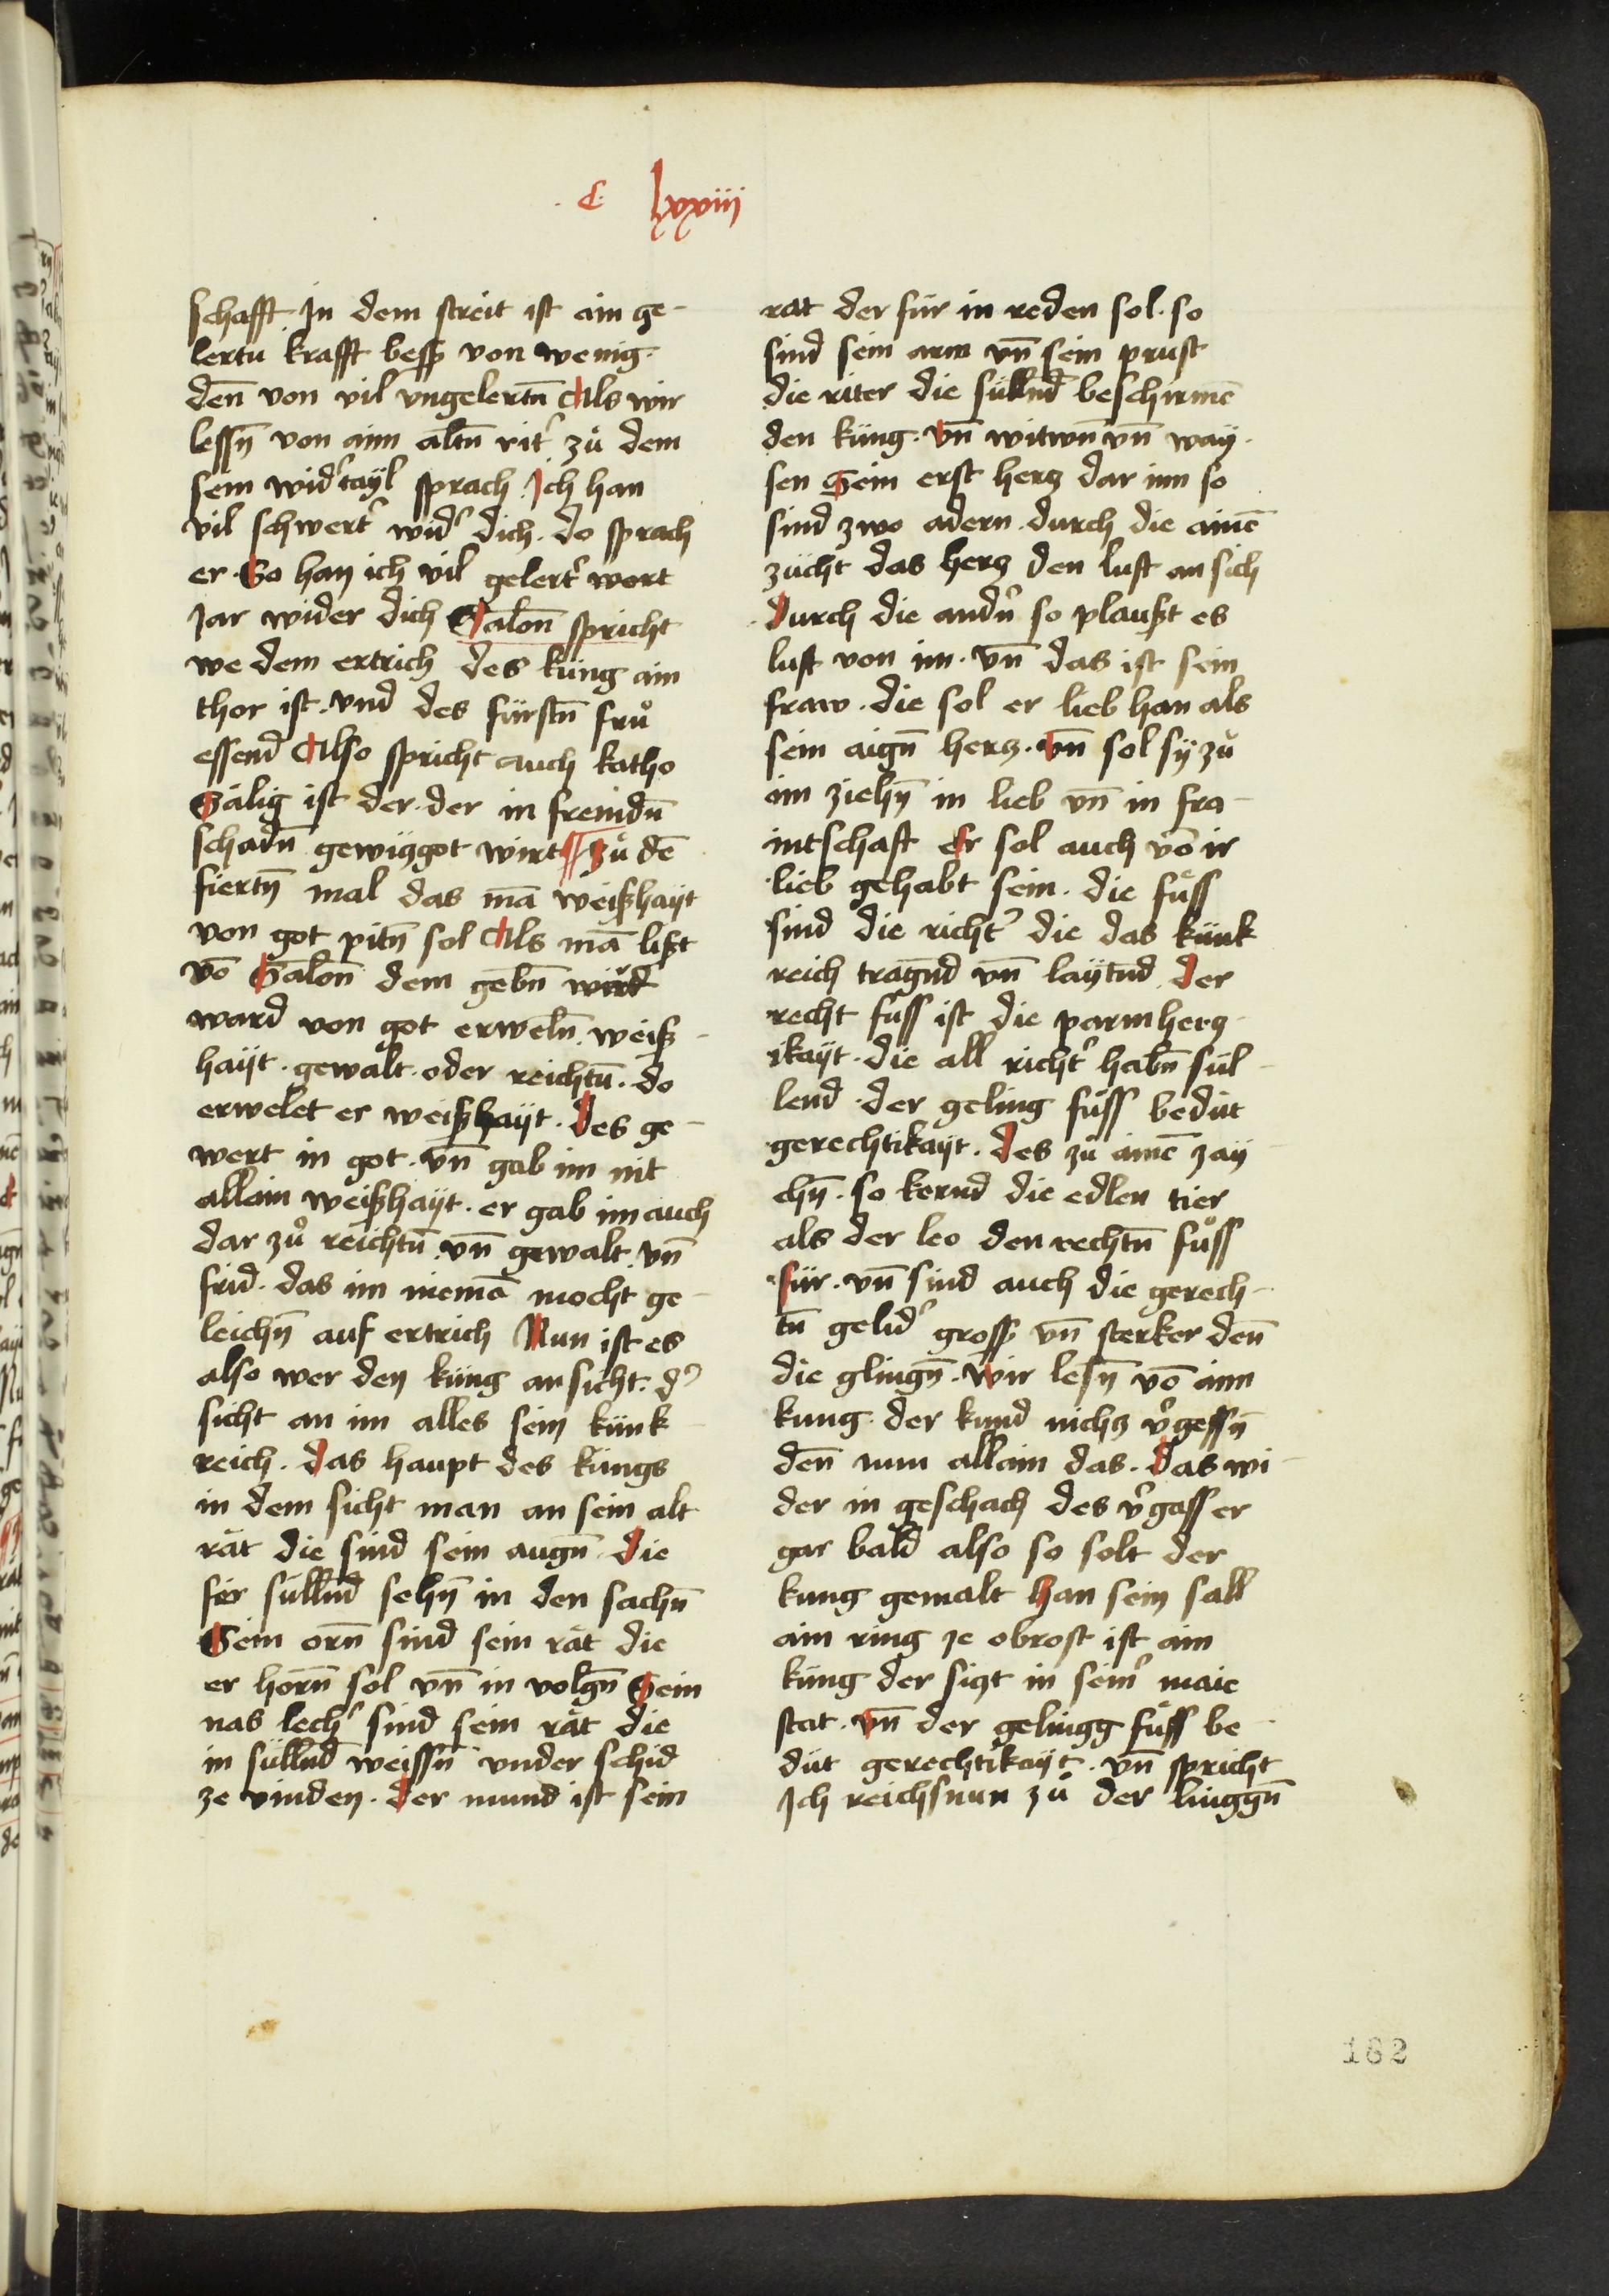 C lxxviii
schafft. In dem streit ist ain ge-
lertu krafft bessʒ von wenig.
deñ von vil vngelertn̄ Als wir
lessn̄ von aim altn̄ rit᷑ zů dem
sein wid᷑tayl sprach. Ich han
vil schwert᷑ wid᷑ dich. do sprach
er. So han ich vil gelert᷑ wort
Jar wider dich Salon̄ spricht
we dem ertrich des küng ain
thor ist. vnd des fürstn̄ frů
essend Also spricht auch katho
Sälig ist der. der in fremdn̄
schadn̄ gewiggot wirt ¶ Zů dē
fiertn̄ mal das mā weißhayt
von got pitn̄ sol Als mā lißt
vō Salon̄ dem gebn̄ wird
ward von got erweln̄. weiß-
hayt. gewalt. oder reichtū. do
erwelet er weißhayt. Des ge-
wert in got. vn̄ gab im nit
allain weißhayt. er gab im auch
dar zů reichtū. vn̄ gewalt. vn̄
frid. das im niemā mocht ge-
leichn̄ auf ertrich Nun ist es
also wer den küng an sicht. d᷑
sicht an im alles sein künk-
reich. Das haupt des küngs
in dem sicht man an sein alt
rät die sind sein augn̄. Die
fer süllnd̄ sehn̄ in den sachn̄
Sein orn̄ sind sein rät die
er horn̄ sol vn̄ in volgn̄ Sein
nas lech᷑ sind sein rät die
in süllnd̄ weissn̄ vnder schid
ze vinden. Der mund ist sein
rat der für in reden sol. so
sind sein arm vn̄ sein prust
die riter die süllnd̄ beschirmē
den küng. vn̄ witwn̄ vn̄ way-
sen Sein erst hercz dar inn so
sind zwo adern. durch die ainē
zücht das hercz den luft an sich
Durch die andn᷑ so plaußt es
luft von im. vn̄ das ist sein
fraw. die sol er lieb han als
sein aign̄ hercz. vn̄ sol sÿ zů
im ziehn̄ in lieb vn̄ in fra-
intschaft Er sol auch vō ir
lieb gehabt sein. die fůss
sind die richt᷑ die das künk
reich tragnd̄ vn̄ laytnd̄. Der
recht fůss ist die parmhercz-
ikayt. die all richt᷑ habn̄ sül-
lend. der geling fůss bedüt
gerechtikayt. Des zů ainē zay-
chn̄. so kernd die edlen tier
als der leo den rechtn̄ fůss
für. vn̄ sind auch die gerech-
tn̄ gelid᷑ grossʒ vn̄ sterker den̄
die glingn̄. Wir lesn̄ vō aim
kung. der kund nichcz v᷑gessn̄
den̄ num allain das. Das wi-
der in geschach des v᷑gass er
gar bald also so solt der
kung gemalt han sein sall
ain ring ze obrost ist ain
küng der siczt in seim᷑ maie
stat. vn̄ der gelingg fůss be-
düt gerechtikayt. vn̄ spricht
Ich reichsnun zů der linggn̄
182